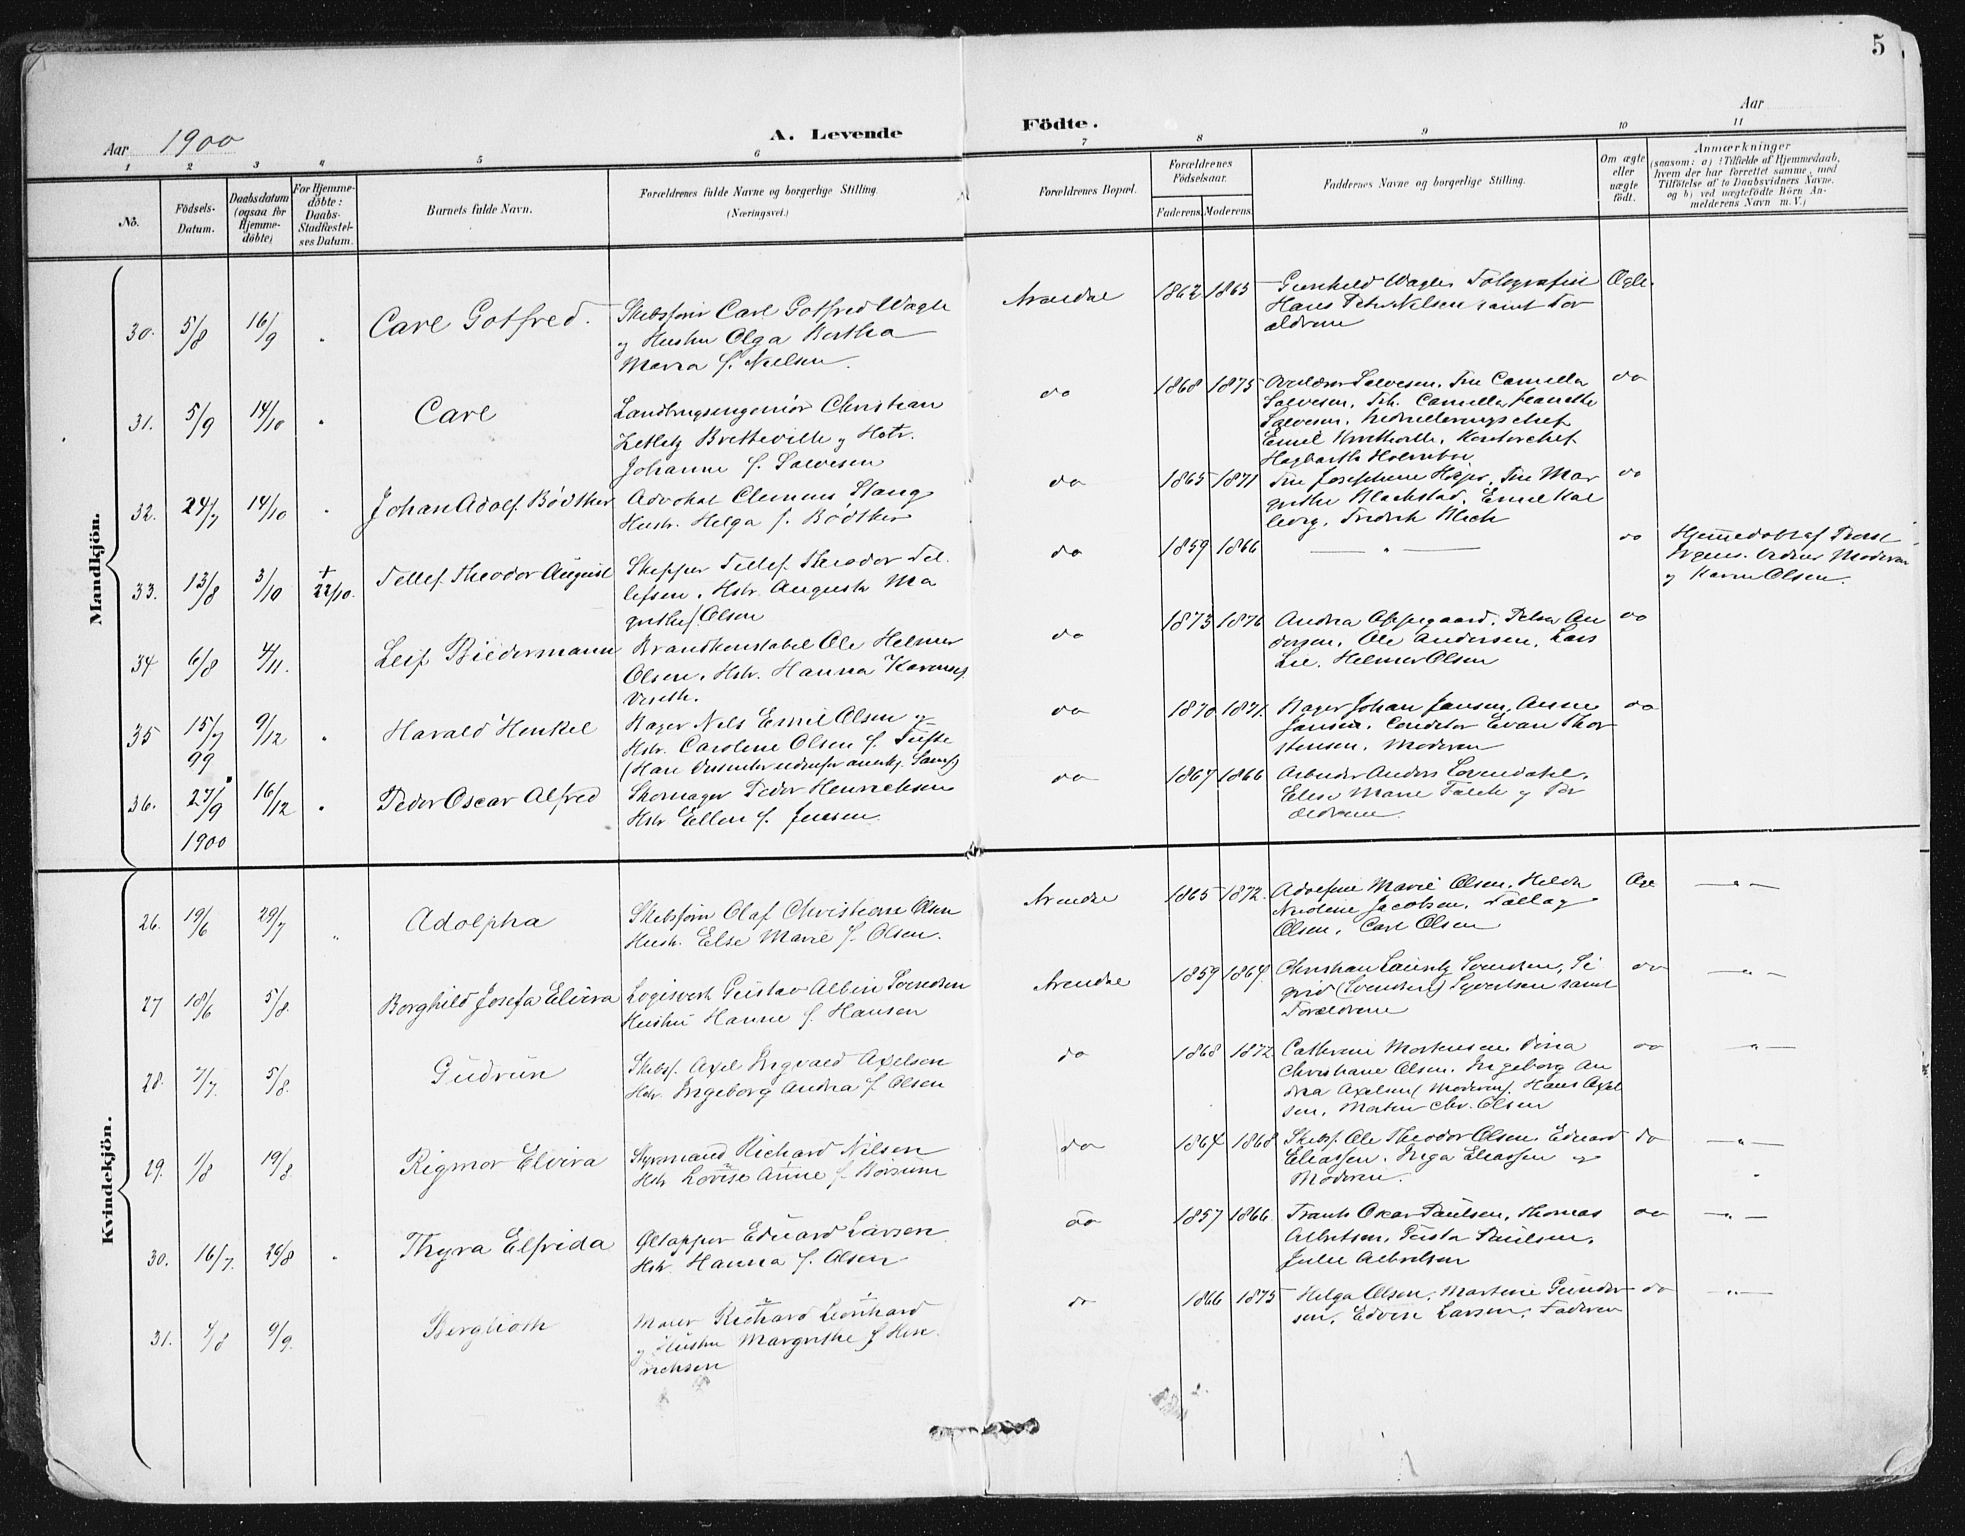 5
Aar 1900
A. Levende Födte.
Aar
1 2 3 4 5 6 7 8 9 10 11
Nō.
Födsels-Datum.
Daabsdatum (ogsaa for Hjemme-döbte)
For Hjemme-döbte: Daabs-Stadfæstel-ses Datum.
Barnets fulde Navn.
Forældrenes fulde Navne og borgerlige Stilling. (Næringsvei.)
Forældrenes Bopæl.
Forældrenes Födselsaar.
Faderens. Moderens.
Faddernes Navne og borgerlige Stilling.
Om ægte eller uægte födt.
Anmærkninger
(saasom: a) i Tilfælde af Hjemmedaab, hvem der har forrettet samme, med Tilföielse af to Daabsvidners Navne. og b) ved uægtefödte Börn Anmelderens Navn m. V.)
Mandkjön.
30. 5/8 16/9 " Carl Gotfred. Skibsfører Carl Gotfred Wagle
og Hustru Olga Bertha
Maria f. Nielsen.
Arendal 1862 1865 Gunhild Wagle, Fotografist
Hans Peter Nilsen samt For
ældrene
Ægte.
31. 5/9 14/10 " Carl Landbrugsingeniør Christian
Zetlitz Bretteville og Hstr.
Johanne f. Salvesen
do 1868 1875 Salvesen, Fru Camilla
Salvesen, Frk. Camilla Jeanette
Salvesen,
Emil Bretteville, Kontorchef
Hagbarth Holmboe
do
32. 24/7 14/10 " Johan Adolf Bödtker Advokat Clemens Stang
Hustr. Helga f. Bödtker
do 1865 1871 Fru Josephine Høyer, Fru Mar
grithe Blackstad, Emil Kal
berg, Fredrik Blich
do
33. 13/8 3/10 + 22/10. Tellef Theodor August Skipper Tellef Theodor Tel
lefsen, Hstr. Augusta Ma
grithe f. Olsen
do 1859 1866 — " — do Hjemmedøbt af
Moderen
og Karen Olsen.
34 6/8 4/11. Leif Biedermann Brandkonstabel Ole Helmer
Olsen, Hstr. Hanna Karense f.
Vereth.
do 1873 1876 Andrea Oppegaard, Petra An
dersen, Ole Andersen, Lars
Lie, Helmer Olsen
do
35 15/7 99 9/12 " Harald Henkel Bager Nils Emil Olsen og
Hstr. Caroline Olsen f. Tufte
do 1870 1871. Bager Johan Jansen, Anne
Jansen, Conditor Evan Thor
stensen, Moderen
do
36. 27/9 1900 16/12 " Peder Oscar Alfred Skomager Peder Henrichsen
Hstr Ellen f. Jensen.
do 1867 1866 Arbeider Anders Lovendahl,
Elise Marie Falck og For
ældrene.
Kvindekjön.
26. 19/6 29/7 " Adolpha Skibsfører Olaf Christian Olsen
Hustr. Else Marie f. Olsen.
Arendal 1865 1872. Adolfine Marie Olsen, Hilda
Nicoline Jacobsen, Tallag
Olsen, Carl Olsen
Æge — " —
27 18/6 5/8. Borghild Josefa Elvira Logisvert Gustav Albin Svendsen
Hustru Hanne f. Hansen
Arendal 1859 1864. Christian Lauritz Svendsen, Si
grid (Svendsen) Syvertsen samt
Forældrene
do — " —
28. 7/7. 5/8. Gudrun Skibsf. Axel Ingvald Axelsen
Hstr. Ingeborg Andrea f. Olsen
do 1868 1872 Cathrine Mortensen, Dina
Christiane Olsen, Ingeborg An
drea Axelsen (Moderen), Hans Axel
sen, Morten Chr. Olsen
do — " —
29. 1/8 19/8. Rigmor Elvira Styrmand Richard Nilsen
Hstr Lovise Anne f. Borsum
do 1864 1868 Skibsf. Ole Theodor Olsen, Eduard
Eliassen, Inga Eliassen og
Moderen.
do — " —
30. 16/7. 26/8 " Thyra Elfrida Øltapper Eduard Larsen
Hstr. Hanna f. Olsen
do 1857 1866. Frants Oscar Paulsen, Thomas
Albertsen, Gusta Paulsen,
Julie Albertsen
do — " —
31. 7/8 9/9. Berglioth Maler Richard Leonhard
og Hustru Margrithe f Hen
richsen
do 1866 1875 Helga Olsen, Martine Gunder
sen, Edvin Larsen, Faderen
do — " —